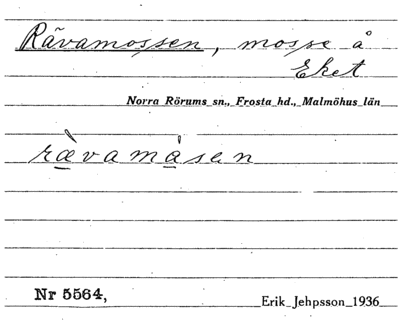 Rävamossen, mosse å
Eket
Norra Rörums sn., Frosta hd., Malmöhus län
ræ̀vamåsen
Nr 5564,
Erik Jehpsson 1936